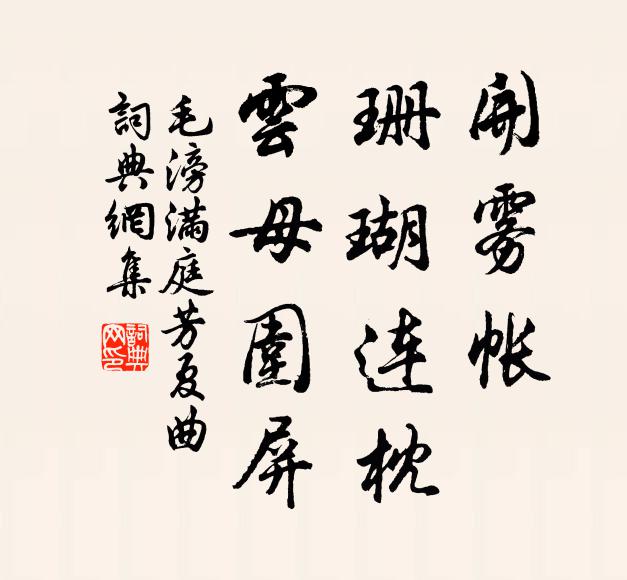 開雾帐
珊瑚连枕
雲母圍屏
毛滂滿庭芳夏曲
詞典網集
詞典网印